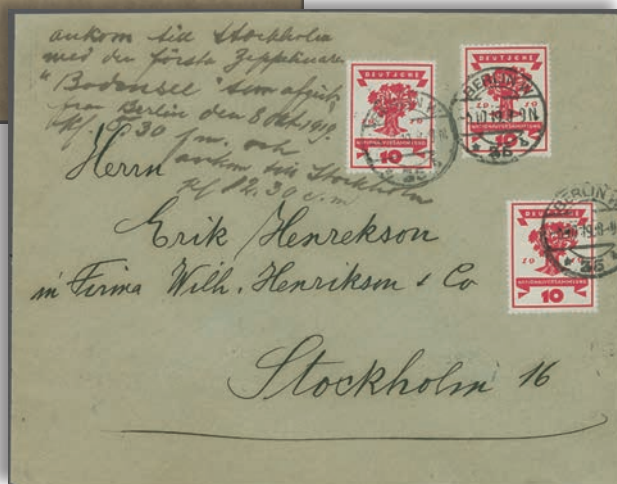 ankom till Stockholm
med den första Zeppelinaren
"Bodensee" som afgick
från Berlin den 8 Okt. 1919.
Kl. 8.30 f.m. och
ankom till Stockholm
Kl 12.30 e.m
Herrn
Erik Henrekson
in Firma Wilh. Henrikson & Co
Stockholm 16
DEUTSCHE
NATIONALVERSAMMLUNG
10
DEUTSCHE
1919
10
BERLIN W
35
DEUTSCHE
1919
NATIONALVERSAMMLUNG
10
BERLIN W
35